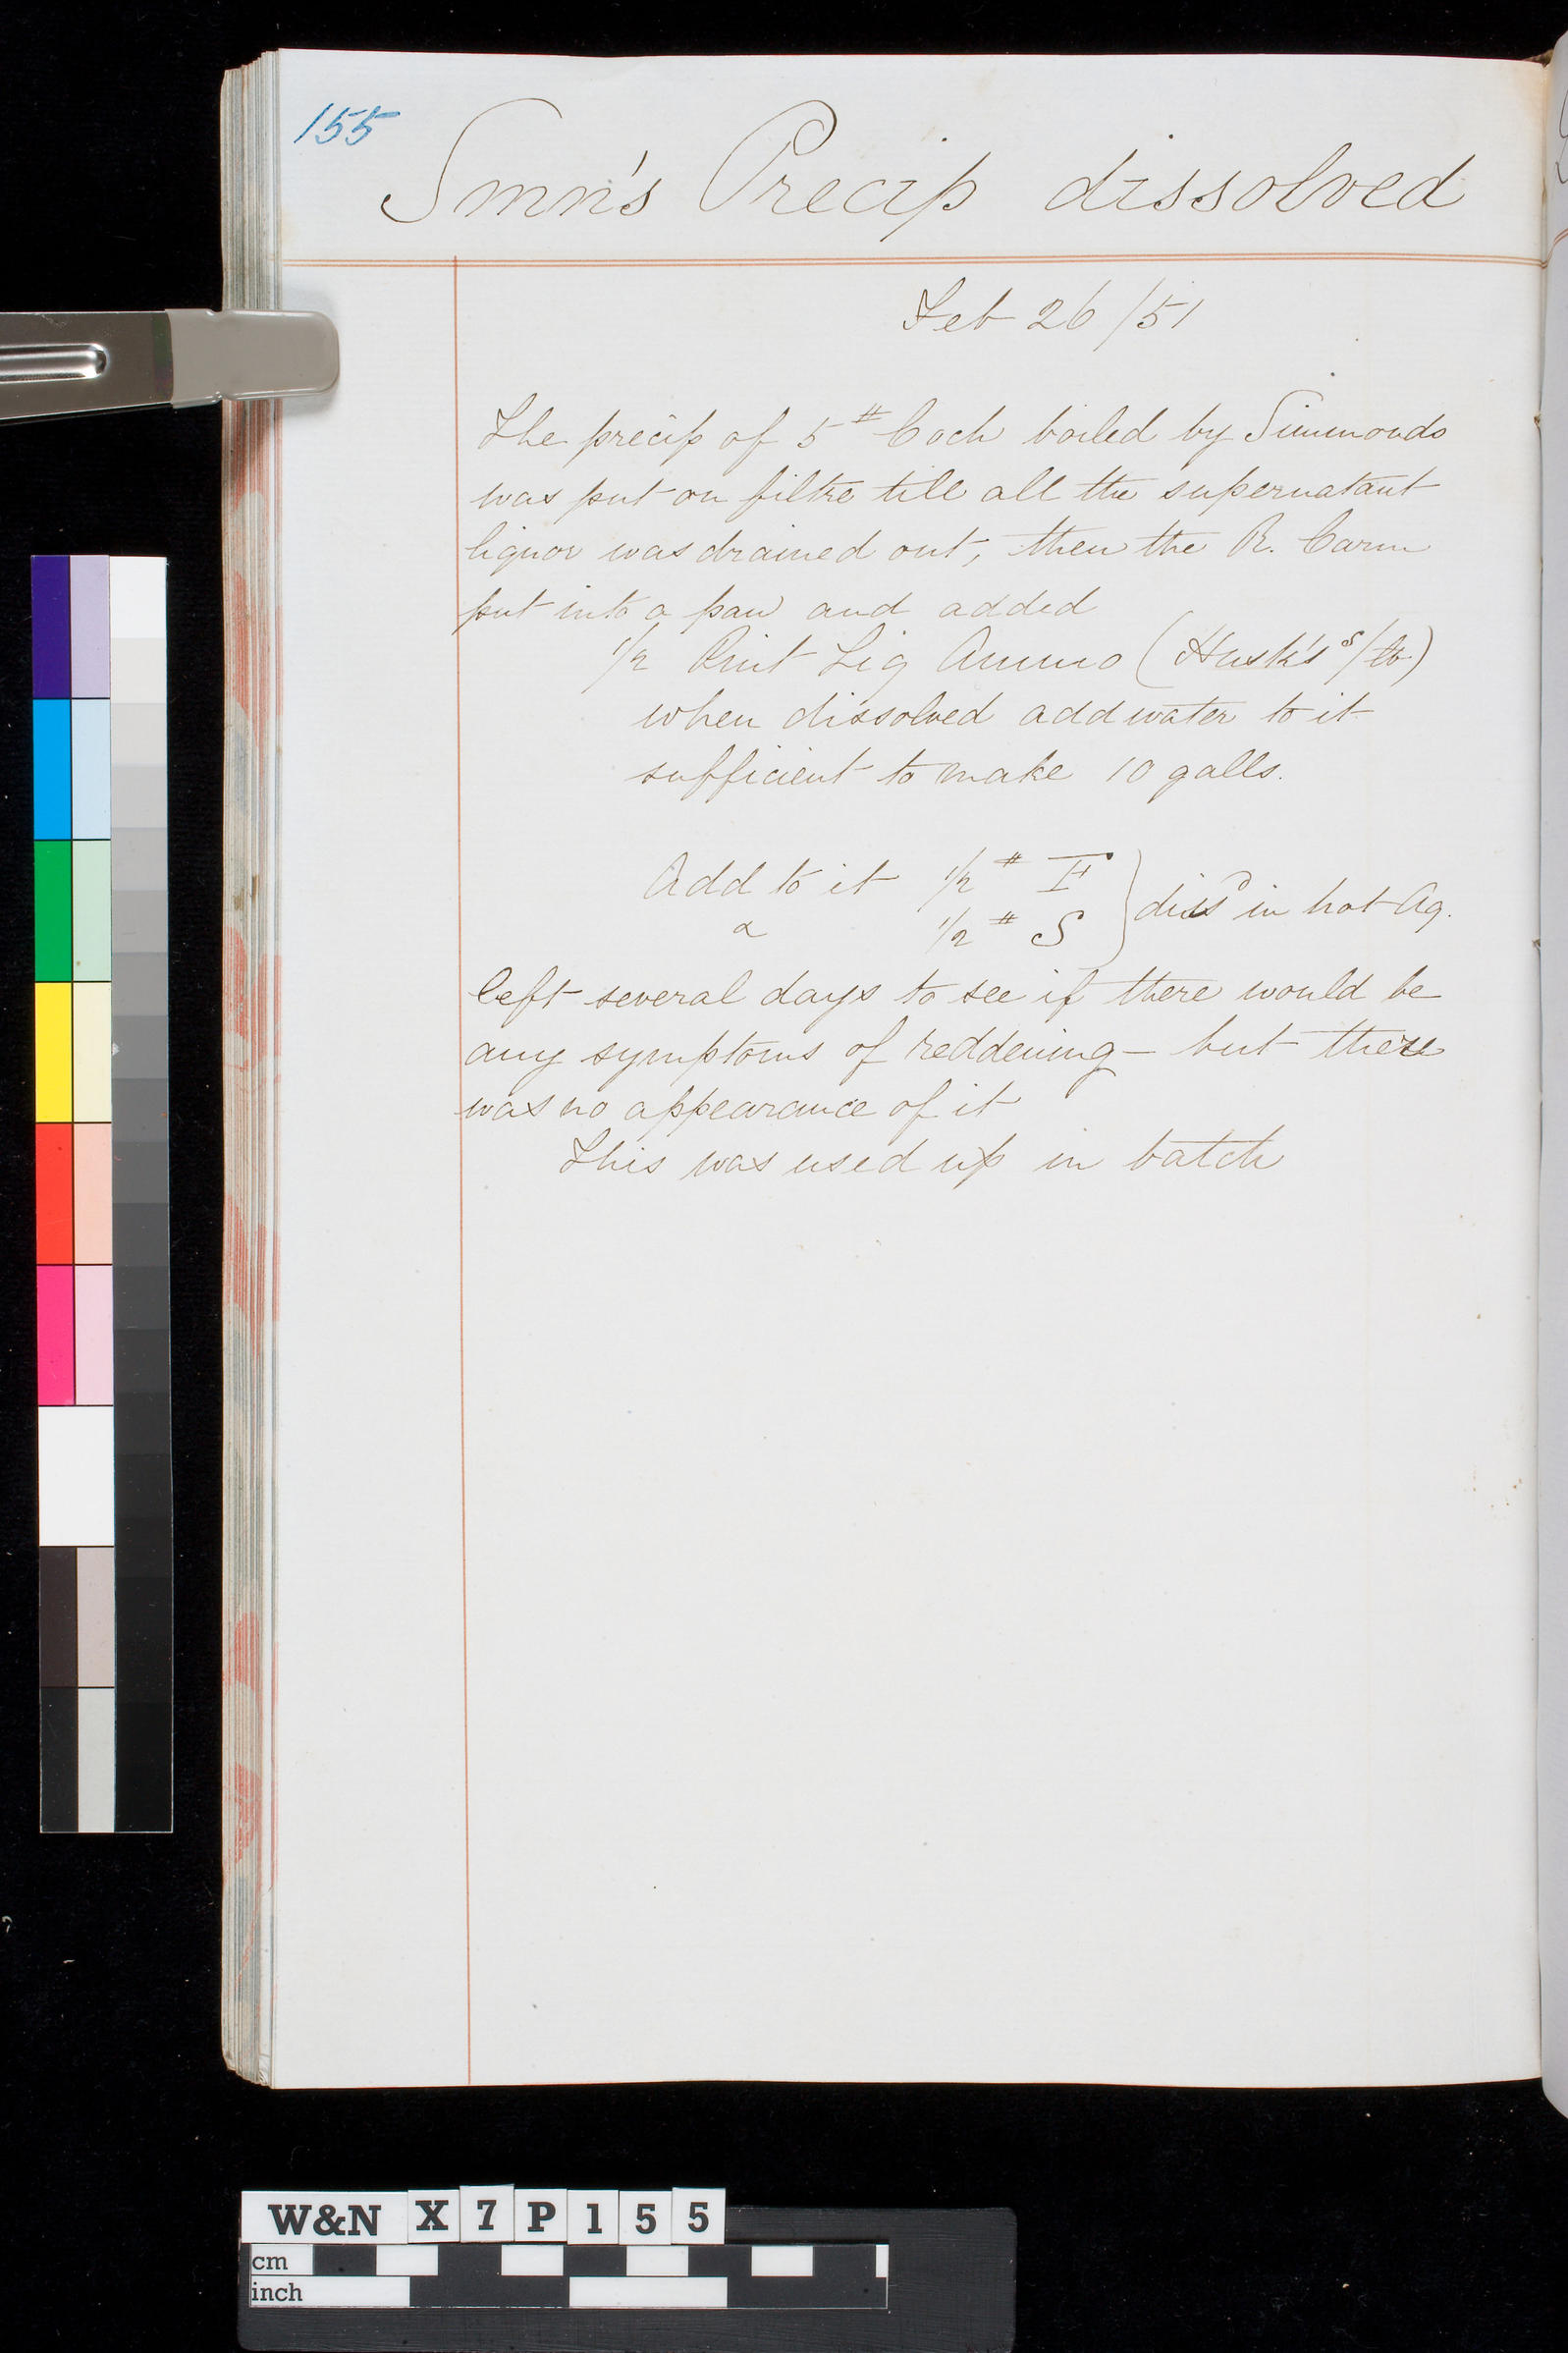 155
Smn's Precip dissolved
Feb 26/51
The precip of 5# Coch boiled by Simmonds
was put on filtre till all the supernatant
liquor was drained out, then the R. Carm
put into a pan and added
1/2 Pint Liq Ammo (Husk's s/lb)
when dissolved add water to it
sufficient to make 10 galls.
Add to it 1/2 # F
& 1/2 # S } dissd in hot Aq.
left several days to see if there would be
any symptoms of reddening - but there
was no appearance of it
This was used up in batch
W&N X 7 P 1 5 5
cm
inch